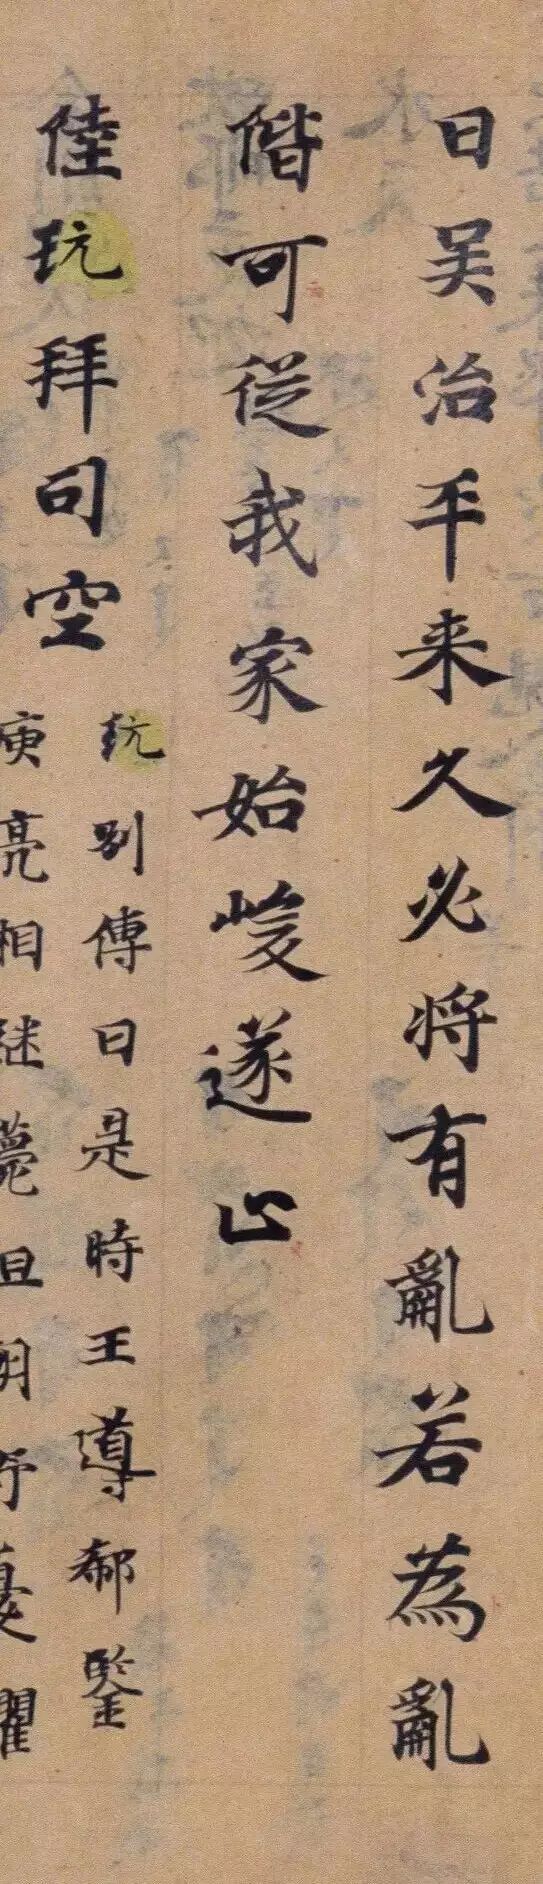 曰吴治平来久必将有亂若為亂
偕可従我家始峻遂止
陸玩拜司空
玩別傳曰是時王導郗鑒
庾亮相継薨旦朝野憂懼